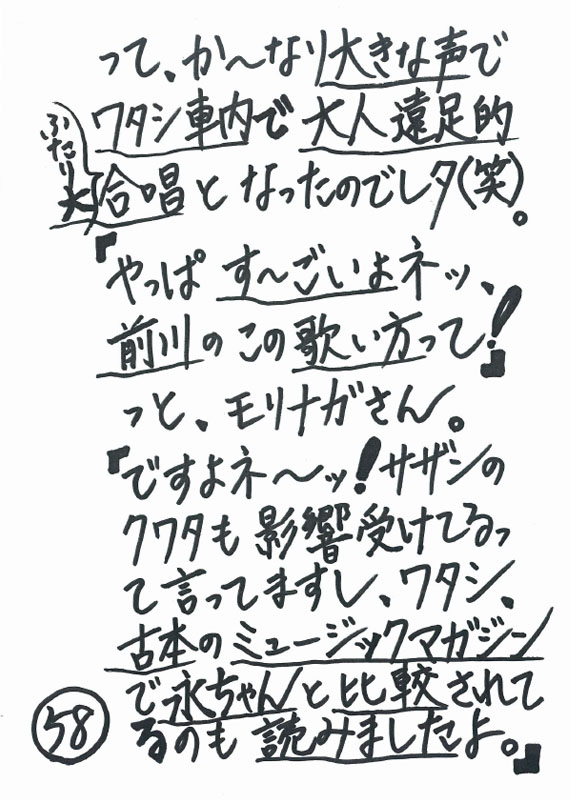 って、か〜なり大きな声で
ワタシ車内で大人遠足的
ふたり大合唱となったのでしタ(笑)。
『やっぱす〜ごいよネッ、
前川のこの歌い方って!』
っと、モリナガさん。
『ですよネ〜ッ!サザンの
クワタも影響受けてるっ
て言ってますし、ワタシ、
古本のミュージックマガジン
で永ちゃんと比較されて
るのも読みましたよ。』
58